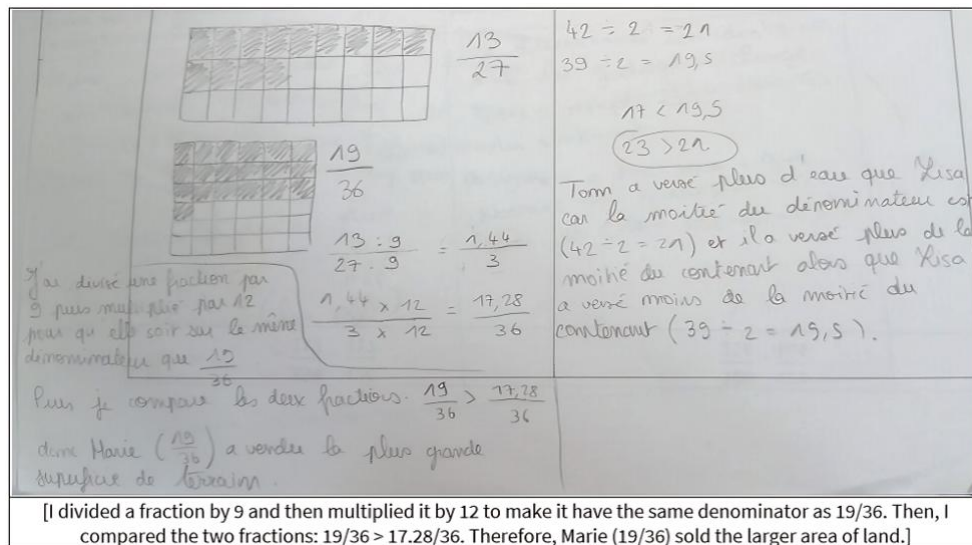 13
27
19
36
13 : 9
27 : 9
= 1,44
3
1,44 x 12
3 x 12
= 17,28
36
J'ai divisé une fraction par
9 puis multiplié par 12
pour qu'elle soit sur le même
dénominateur que 19
36
Puis je compare les deux fractions. 19/36 > 17,28/36
donc Marie (19/36) a vendu la plus grande
superficie de terrain.
42 ÷ 2 = 21
39 ÷ 2 = 19,5
17 < 19,5
23 > 21
Tom a versé plus d'eau que Lisa
car la moitié du dénominateur est
(42 ÷ 2 = 21) et il a versé plus de la
moitié du contenant alors que Lisa
a versé moins de la moitié du
contenant (39 ÷ 2 = 19,5).
[I divided a fraction by 9 and then multiplied it by 12 to make it have the same denominator as 19/36. Then, I
compared the two fractions: 19/36 > 17.28/36. Therefore, Marie (19/36) sold the larger area of land.]